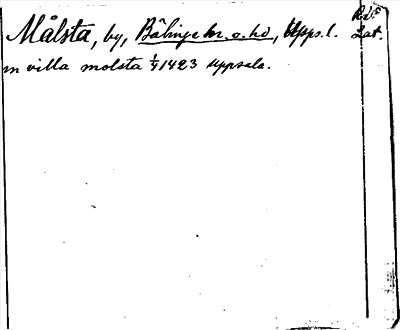 Målsta, by, Bälinge sn. o. hd, Upps. l.
RAÖ
Lat.
in villa molsta 1/4 1423 Uppsala.